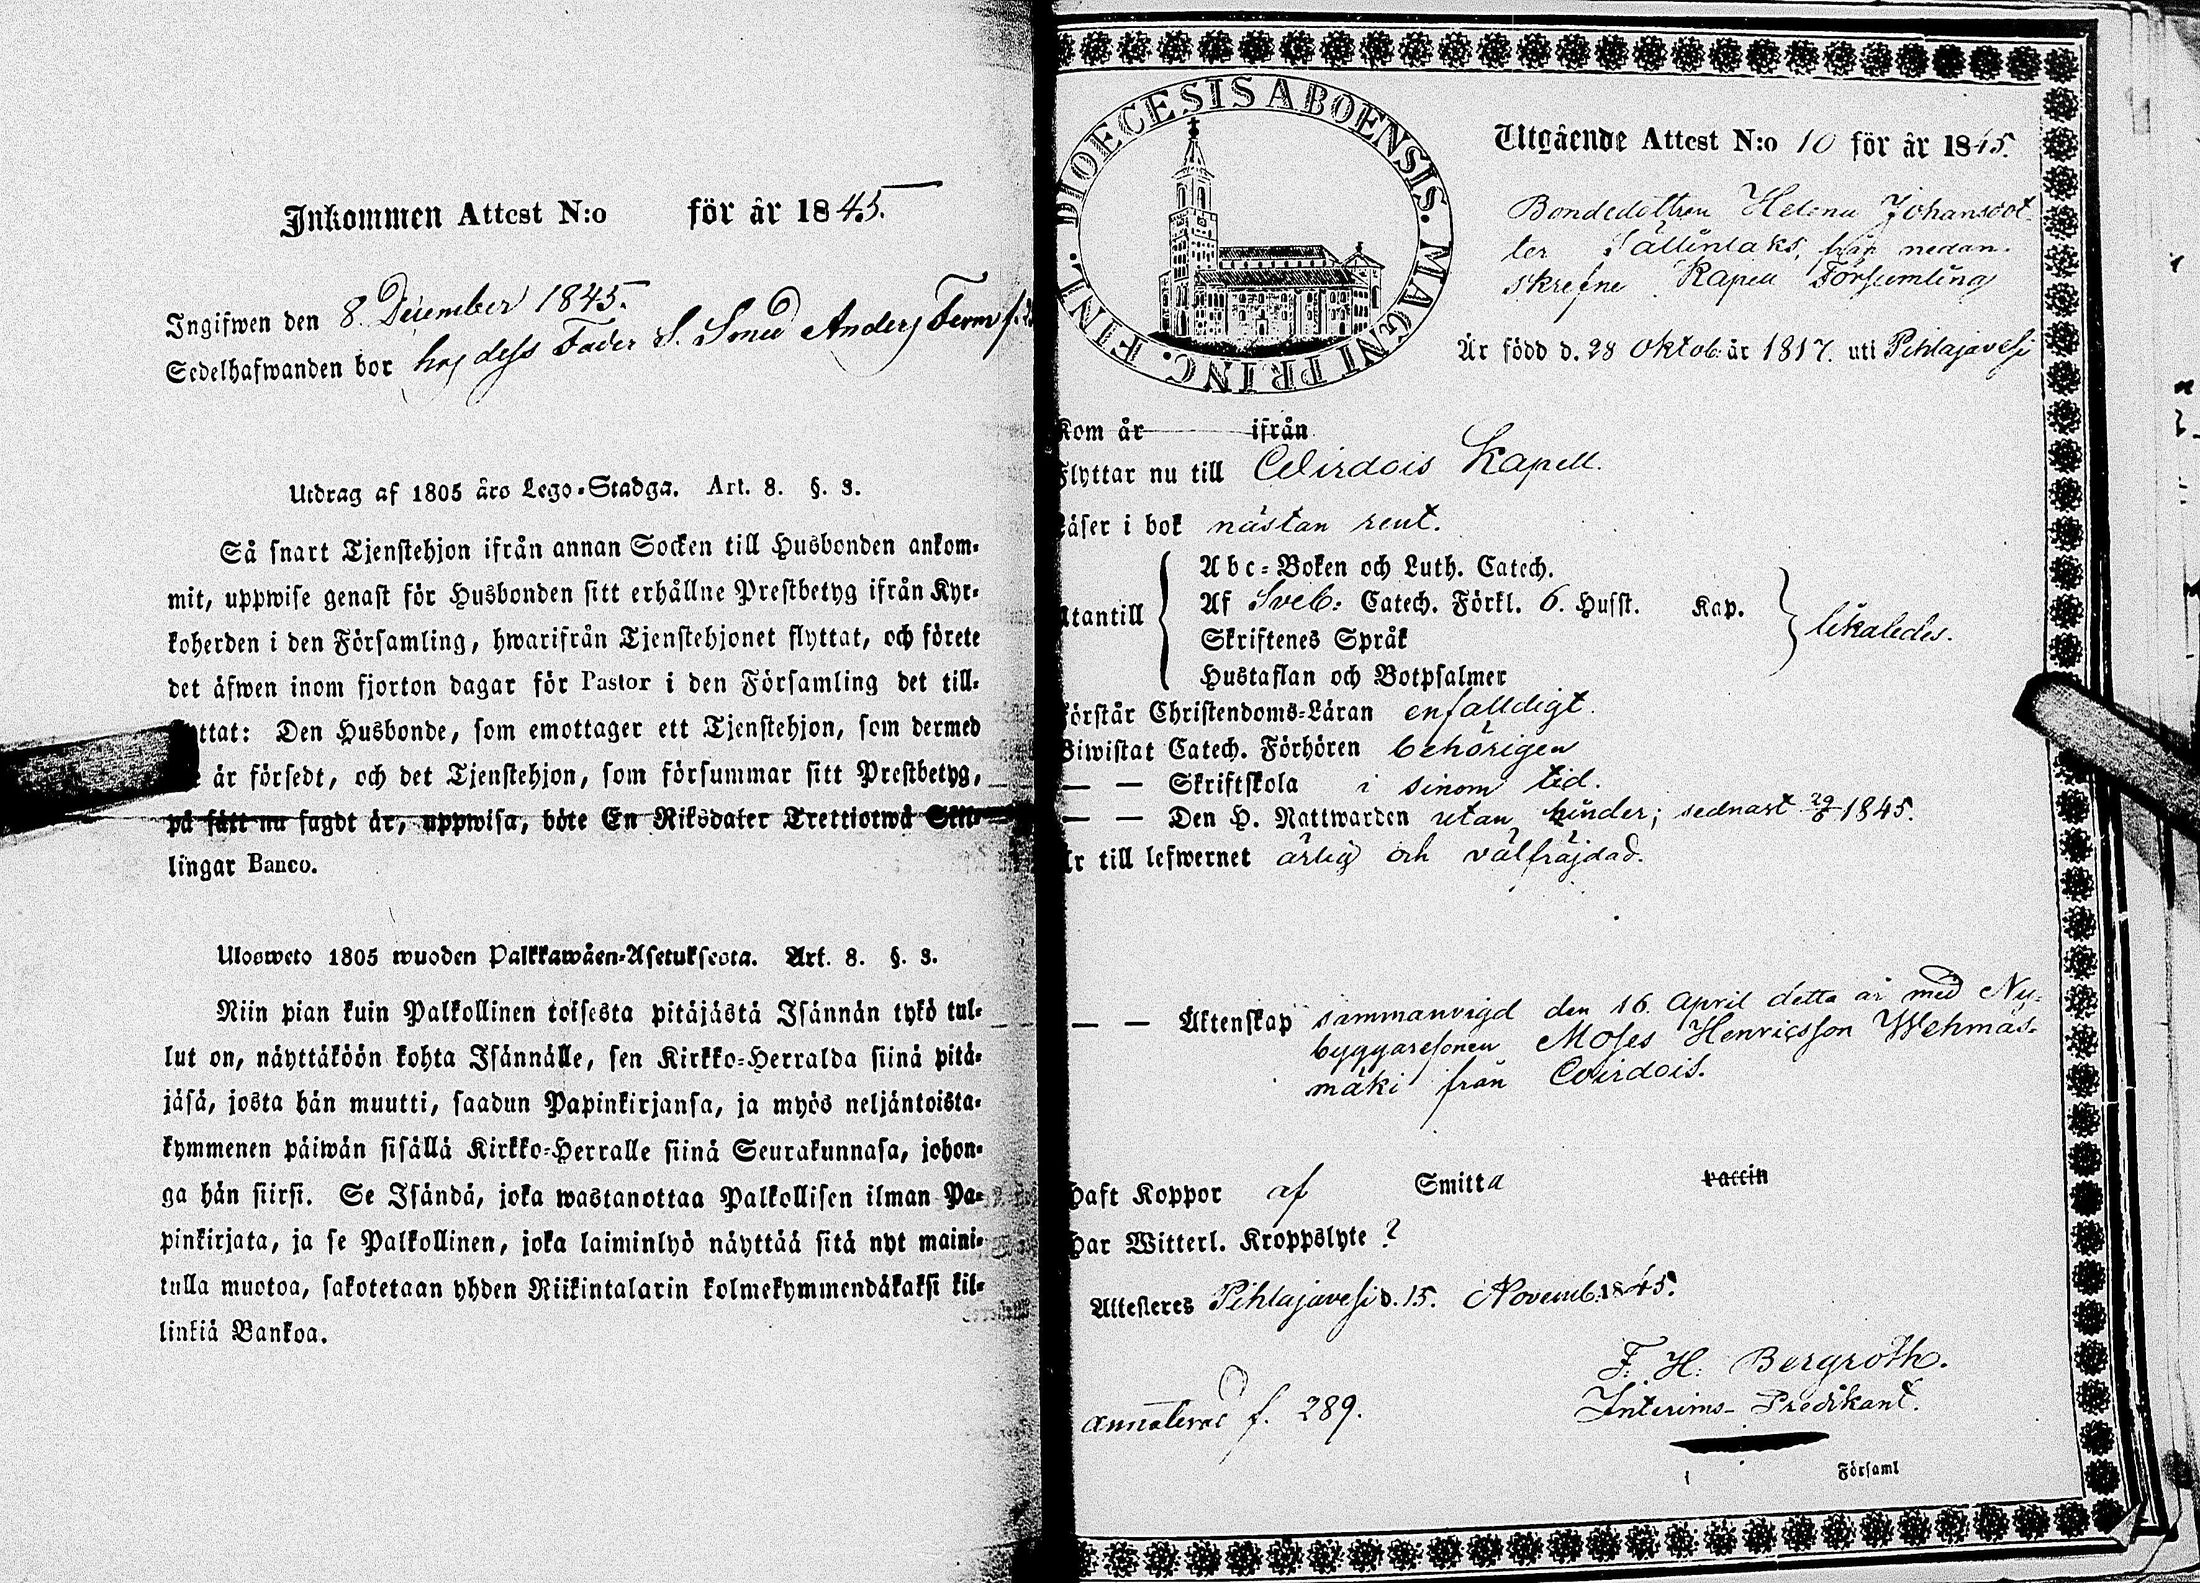 Inkommen Attest N:o för år 1845.
Ingifwen den 8. December 1845.
Sedelhafwanden bor hos dess Fader S. Smed Anders
Utdrag af 1805 års Lego-Stadga. Art. 8. §. 3.
Så snart Tjenstehjon ifrån annan Socken till Husbonden ankom-
mit, uppwise genast för Husbonden sitt erhållne Prestbetyg ifrån Kyr-
koherden i den Församling, hwarifrån Tjenstehjonet flyttat, och förete
det äfwen inom fjorton dagar för Pastor i den Församling det till-
ttat: Den Husbonde, som emottager ett Tjenstehjon, som dermed
e är försedt, och det Tjenstehjon, som försummar sitt Prestbetyg,
på sätt nu sagdt är, uppwisa, böte En Riksdaler Trettiotwå Skil-
lingar Banco.
Ulosweto 1805 wuoden Palkkawäen-Asetuksesta. Art. 8. §. 3.
Niin pian kuin Palkollinen toisesta pitäjästä Isännän tykö tul-
lut on, näyttäköön kohta Isännälle, sen Kirkko-Herralda siinä pitä-
jäsä, josta hän muutti, saadun Papinkirjansa, ja myös neljäntoista-
kymmenen päiwän sisällä Kirkko-Herralle siinä Seurakunnasa, johon-
ga hän siirsi. Se Isändä, joka wastanottaa Palkollisen ilman Pa-
pinkirjata, ja se Palkollinen, joka laiminlyö näyttää sitä nyt maini-
tulla muotoa, sakotetaan yhden Riikintalarin kolmekymmendäkaksi kil-
linkiä Bankoa.
DIOECESIS ABOENSIS. MAGNI PRINC. FINL.
Utgående Attest N:o 10 för år 1845.
Bondedottren Helena Johansdot-
ter från nedan-
skrefne Kapell Församling
Är född d. 28 Oktob: år 1817. uti Pihlajavesi
Kom år ifrån
Flyttar nu till Wirdois Kapell.
Läser i bok nästan rent.
Utantill
Abc-Boken och Luth. Catech.
Af Sveb: Catech. Förkl. 6. Husst. Kap.
Skriftenes Språk
Hustaflan och Botpsalmer
likaledes.
Förstår Christendoms-Läran enfalldigt.
Biwistat Catech. Förhören behörigen
— — Skriftskola i sinom tid.
— — Den H. Nattwarden utan hinder; sednast 1845.
Är till lefwernet ärlig och välfräjdad.
— — Äktenskap sammanvigd den 16. April detta år med Ny-
byggaresonen Moses Henricsson Wehmas-
mäki från Wirdois.
Haft Koppor af Smitta vaccin
Har Witterl. Kroppslyte?
Attesteres Pihlajavesi d. 15. Novemb. 1845.
F. H. Bergroth.
Interims-Predikant.
annoteras f. 289.
Församl